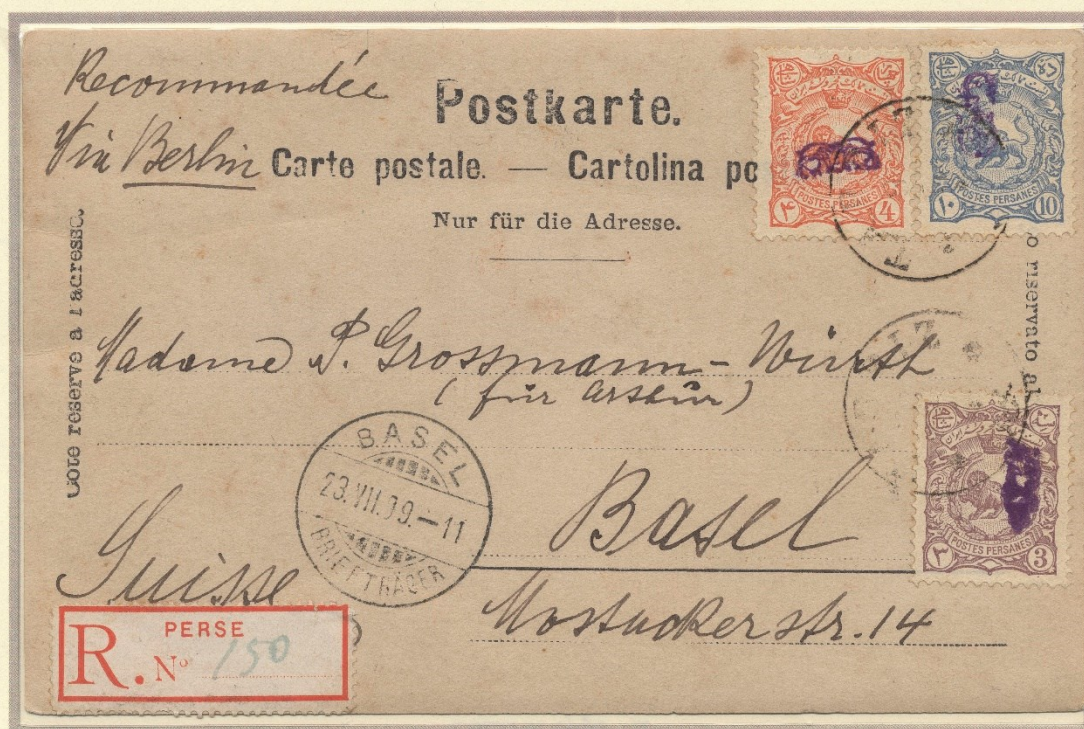 Recommandée
Via Berlin
Postkarte.
Carte postale. — Cartolina po
Nur für die Adresse.
Côté réservé à l'adresse.
o riservato al
POSTES PERSANES
۴ 4
POSTES PERSANES
۱۰ 10
Madame P. Grossmann-Würth
(für Arthur)
BASEL
23.VII.09.-11
BRIEFTRÄGER
Basel
POSTES PERSANES
۳ 3
Suisse
Mostackerstr. 14
R. PERSE
No 150